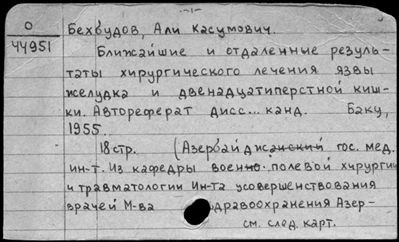 О
44951
Бехбудов, Али Касумович.
Ближайшие и отдаленные резуль-
таты хирургического лечения язвы
желудка и двенадцатиперстной киш-
ки. Автореферат дисс... канд. Баку,
1955.
18 стр. (Азербайджанский гос. мед.
ин-т. Из кафедры военно-полевой хирургии
и травматологии Ин-та усовершенствования
врачей М-ва здравоохранения Азер-
см. след. карт.